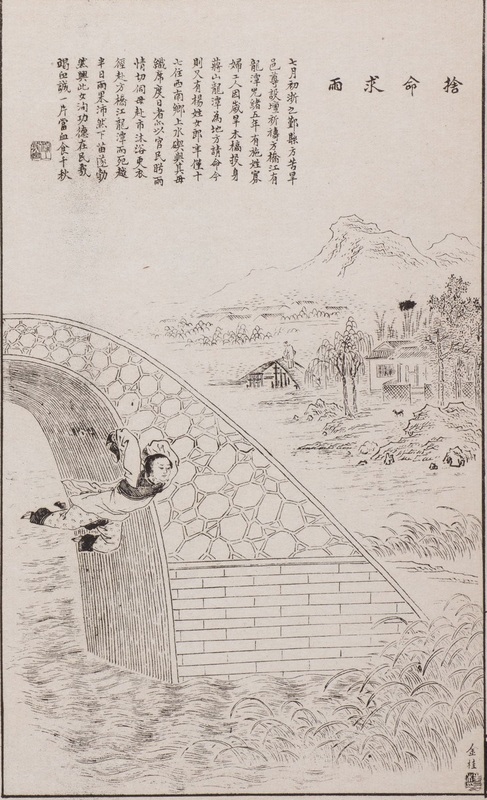 捨命求雨
七月初浙之鄞縣方苦旱
邑尊設壇祈禱方橋江有
龍潭光緒五年有施姓寡
婦工人因歲旱木橋投身
蔣山龍潭為地方請命今
則又有楊姓女郎年僅十
七住西南鄉上水碶與其母
織席度日者也以官民盼雨
情切伺母赴市沐浴更衣
徑赴方橋江龍潭而死越
半日雨果沛然下苗遂勃
然興此女洵功德在民哉
竭血誠一片當血食千秋
金桂